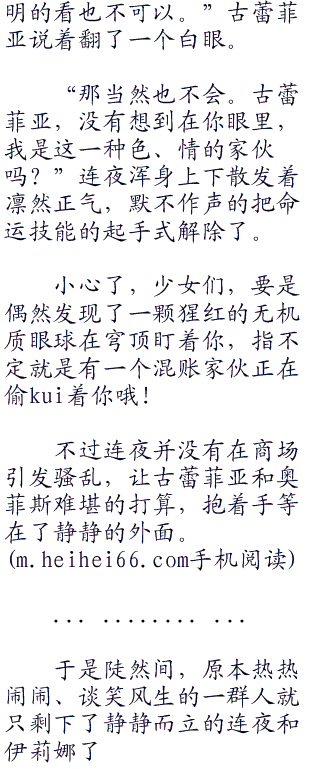 明的看也不可以。”古蕾菲
亚说着翻了一个白眼。
“那当然也不会。古蕾
菲亚，没有想到在你眼里，
我是这一种色、情的家伙
吗？”连夜浑身上下散发着
凛然正气，默不作声的把命
运技能的起手式解除了。
小心了，少女们，要是
偶然发现了一颗猩红的无机
质眼球在穹顶盯着你，指不
定就是有一个混账家伙正在
偷kui着你哦！
不过连夜并没有在商场
引发骚乱，让古蕾菲亚和奥
菲斯难堪的打算，抱着手等
在了静静的外面。
(m.heihei66.com手机阅读)
... ........ ...
于是陡然间，原本热热
闹闹、谈笑风生的一群人就
只剩下了静静而立的连夜和
伊莉娜了